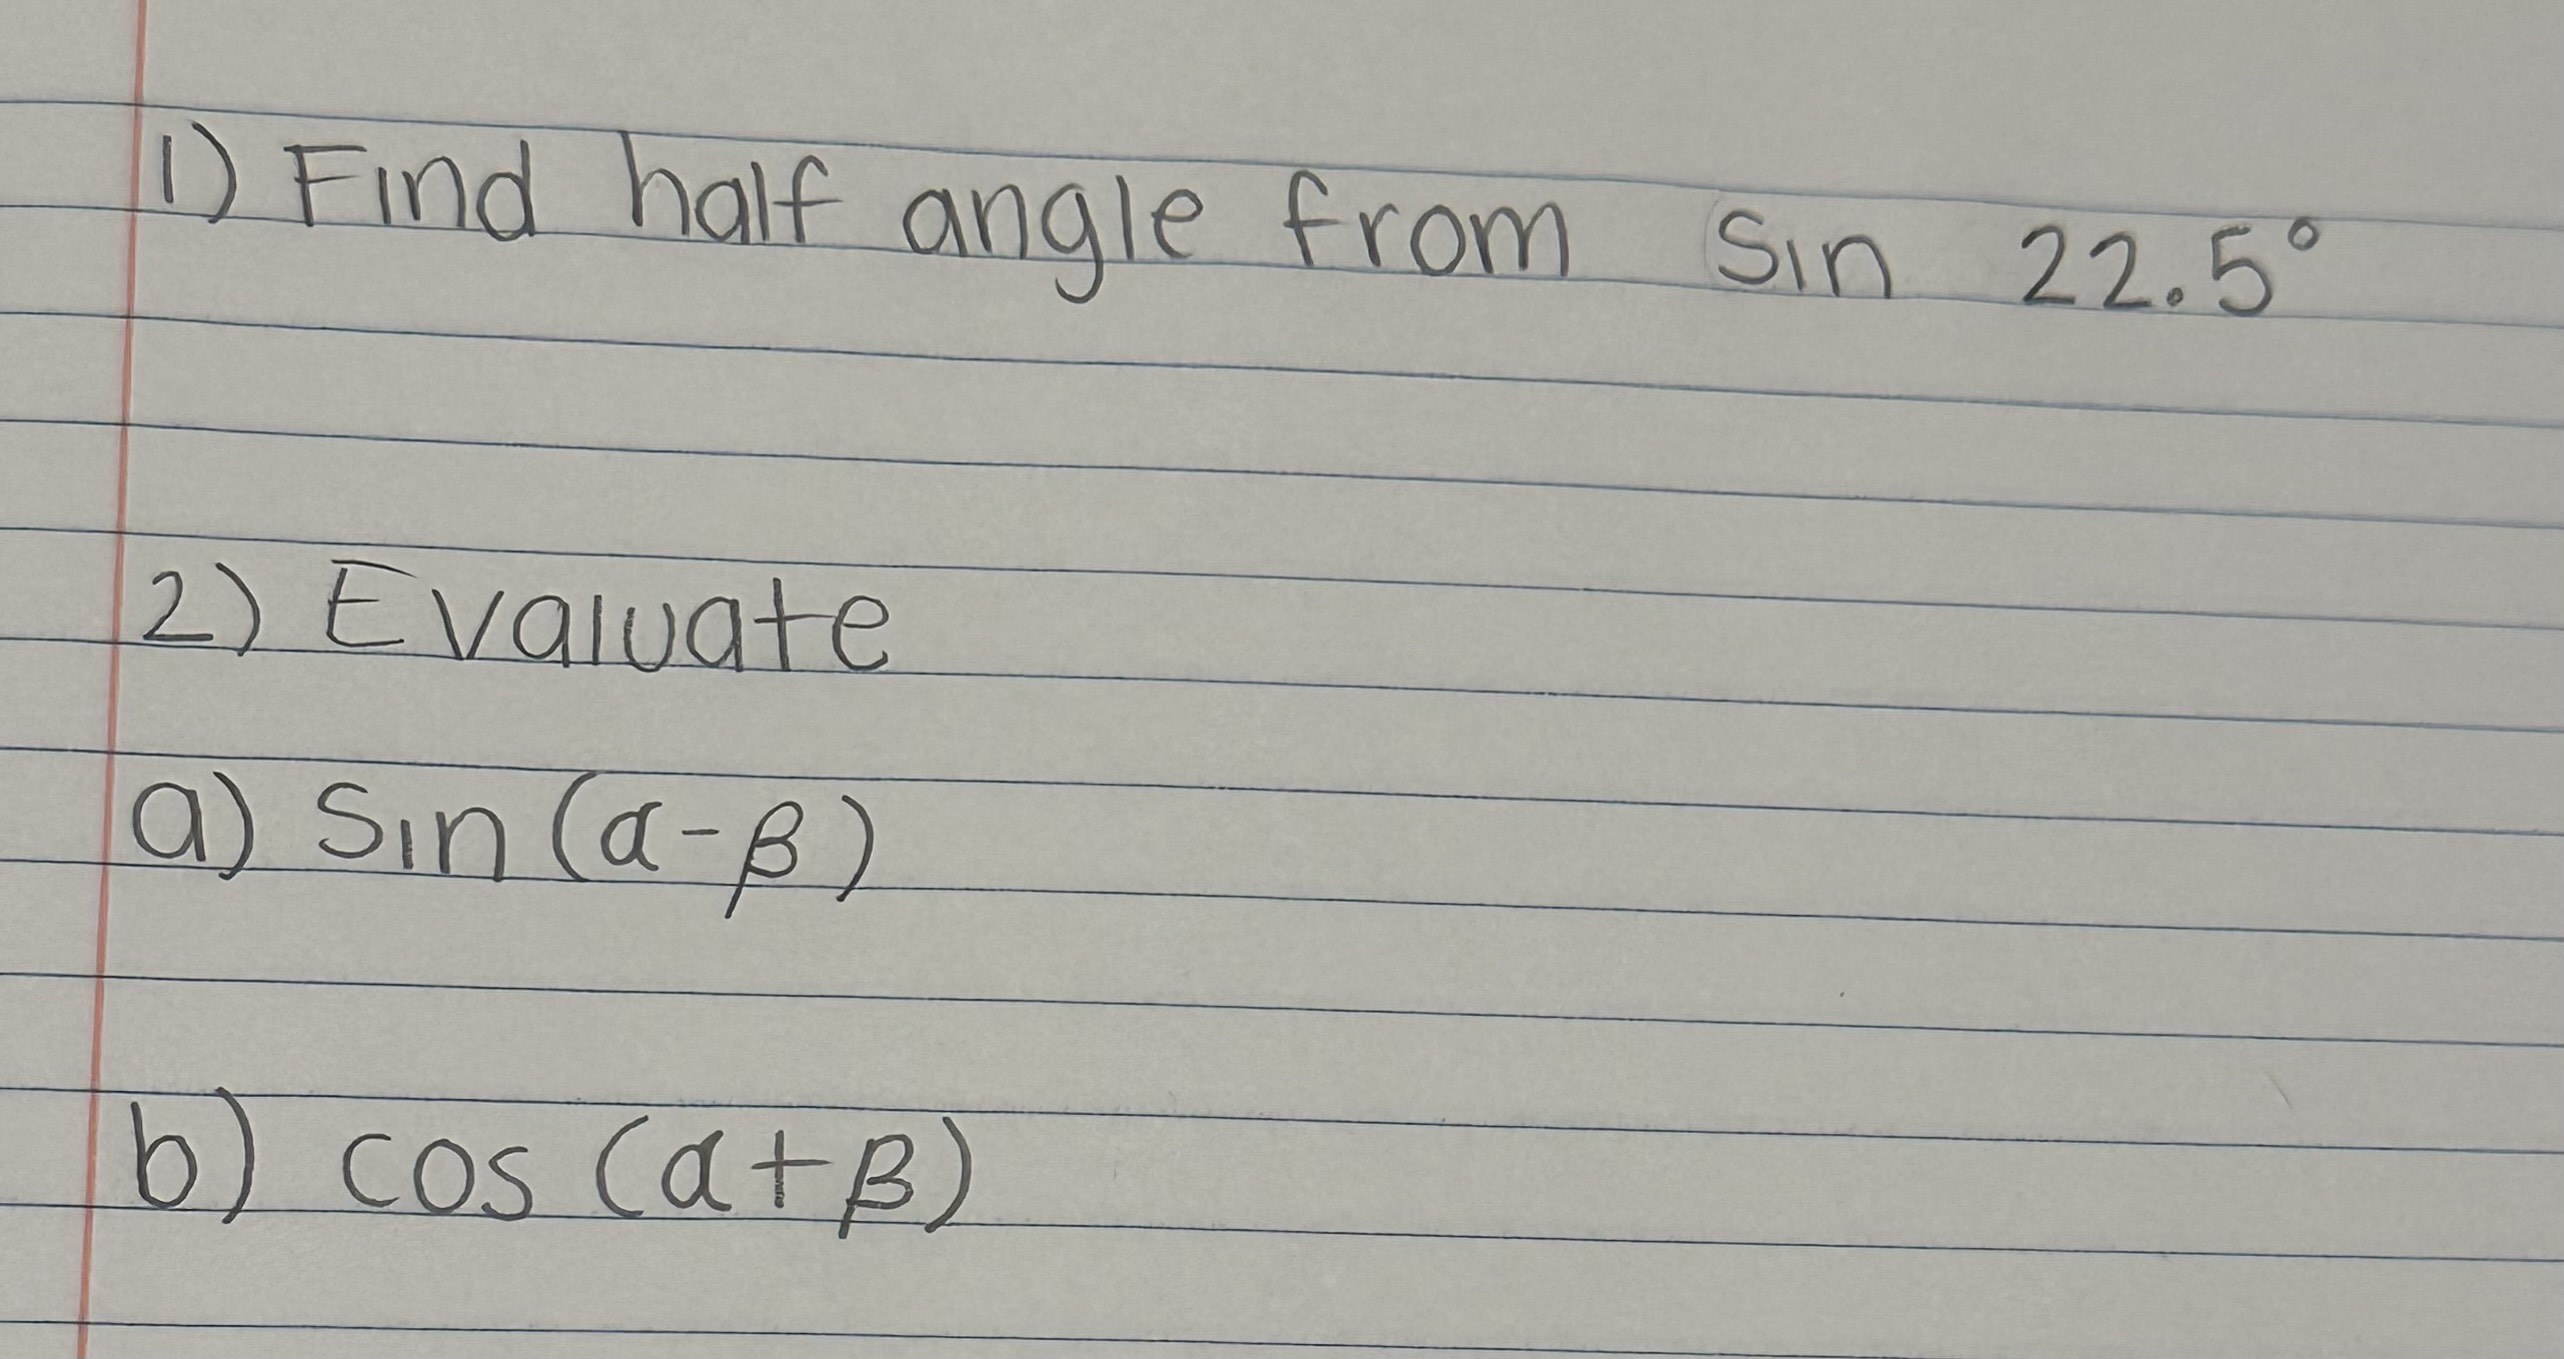 1) Find half angle from sin 22.5°
2) Evaluate
a) sin (α-β)
b) cos (α+β)